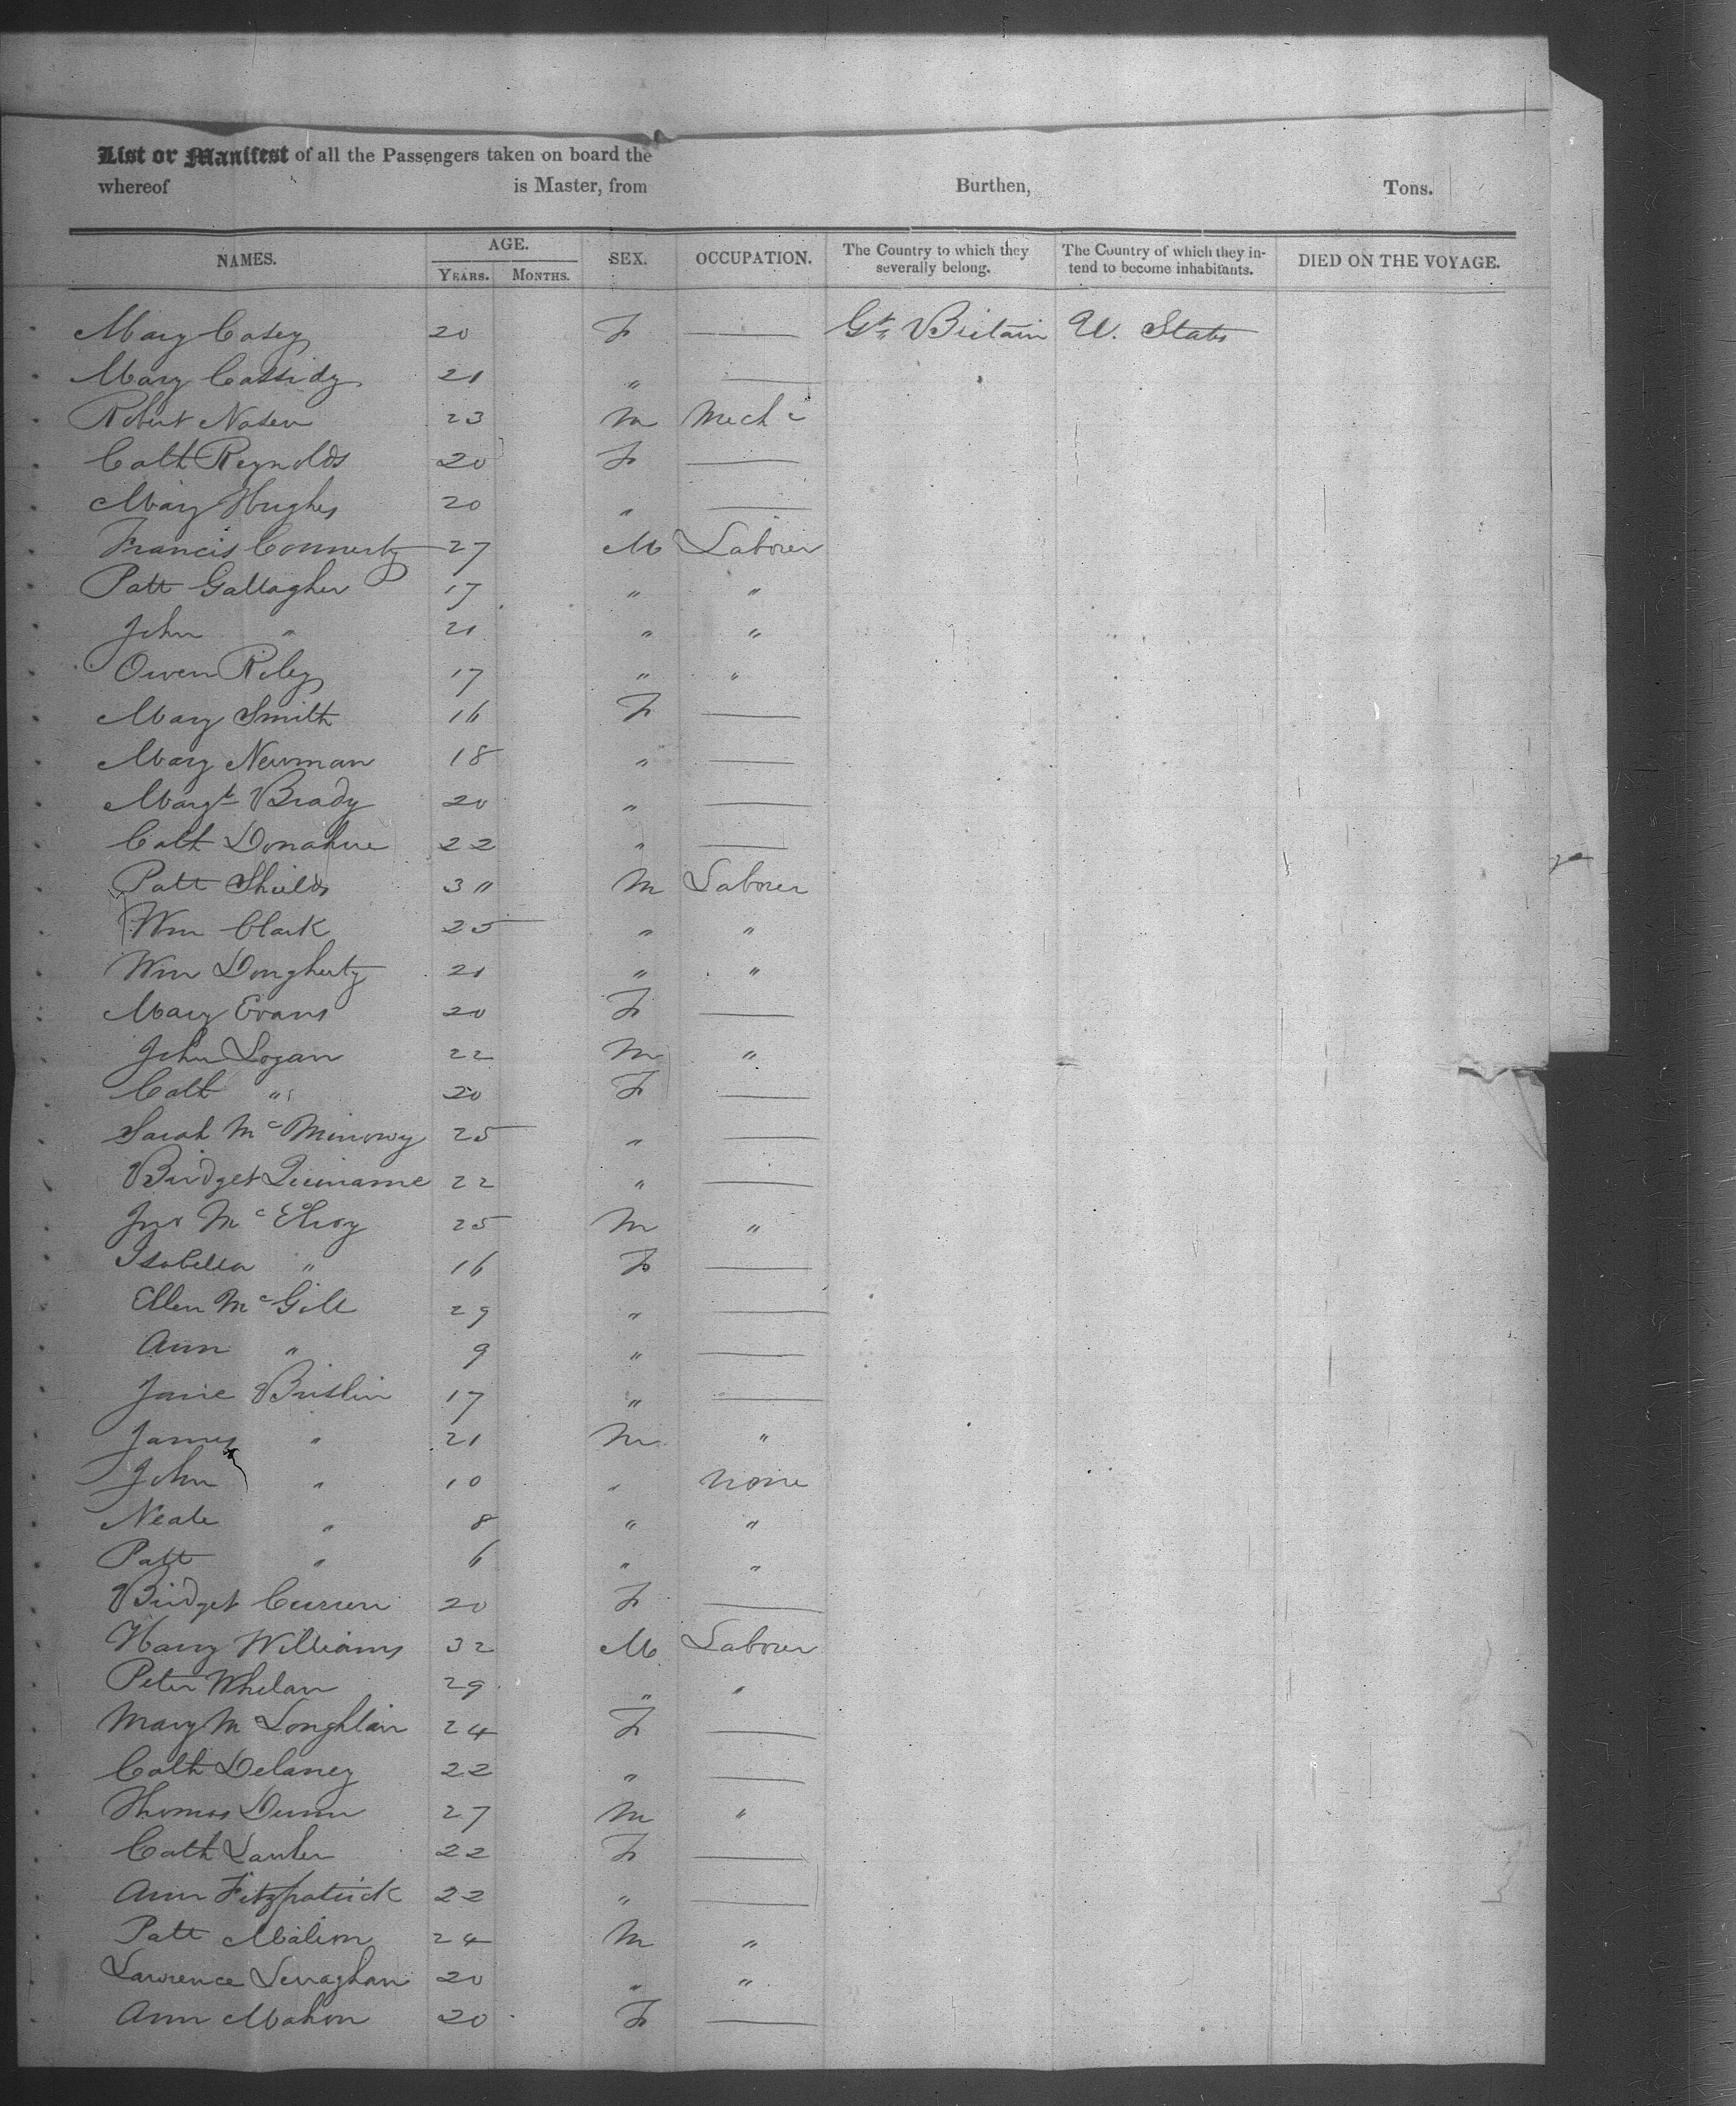 List or Manifest of all the Passengers taken on board the
whereof is Master, from Burthen, Tons.
NAMES. AGE. SEX. OCCUPATION. The Country to which they severally belong. The Country of which they intend to become inhabitants. DIED ON THE VOYAGE.
YEARS. MONTHS.
Mary Casey 20 F — Gt. Britain U. States
Mary Cassidy 21 " —
Robert 23 M Mech c
Cath Reynolds 20 F —
Mary Hughes 20 " —
Francis Connerty 27 M Laborer
Patt Gallagher 17 " "
John " 21 " "
Owen Riley 17 " "
Mary Smith 16 F —
Mary Newman 18 " —
Margt Brady 20 " —
Cath Donahue 22 " —
Patt Shields 30 M Laborer
Wm Clark 25 " "
Wm Dougherty 21 " "
Mary Evans 20 F —
John Logan 22 M "
Cath " 20 F —
Sarah Mc 25 " —
Bridget 22 " —
Jno McElroy 25 M "
Isabella " 16 F —
Ellen McGill 29 " —
Ann " 9 " —
Jane Brislin 17 " —
James " 21 M "
John " 10 " None
Neale " 8 " "
Patt " 6 " "
Bridget Curren 20 F —
Harry Williams 32 M Laborer
Peter Whelan 29 " "
Mary M Loughlan 24 F —
Cath Delaney 22 " —
Thomas Dunn 27 M "
Cath Lawler 22 F —
Ann Fitzpatrick 22 " —
Patt 24 M "
Lawrence Lenaghan 20 " "
Ann Mahon 20 F —